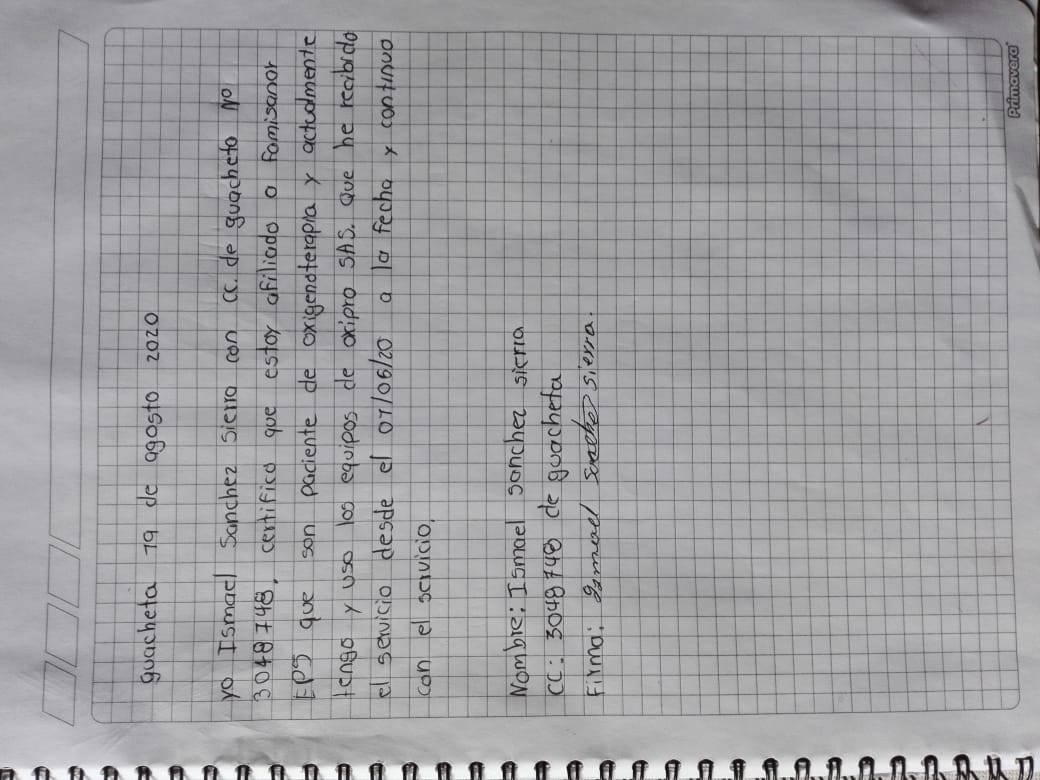 guacheta 19 de agosto 2020
yo Ismael Sanchez Sierra con CC. de guacheta No
3048748, certifico que estoy afiliado a famisanar
EPS que son paciente de oxigenoterapia y actualmente
tengo y uso los equipos de oxipro SAS. Que he recibido
el servicio desde el 01/06/20 a la fecha y continuo
con el servicio.
Nombre: Ismael sanchez sierra
CC: 3048748 de guacheta
Firma: Ismael Sanchez sierra.
Primavera